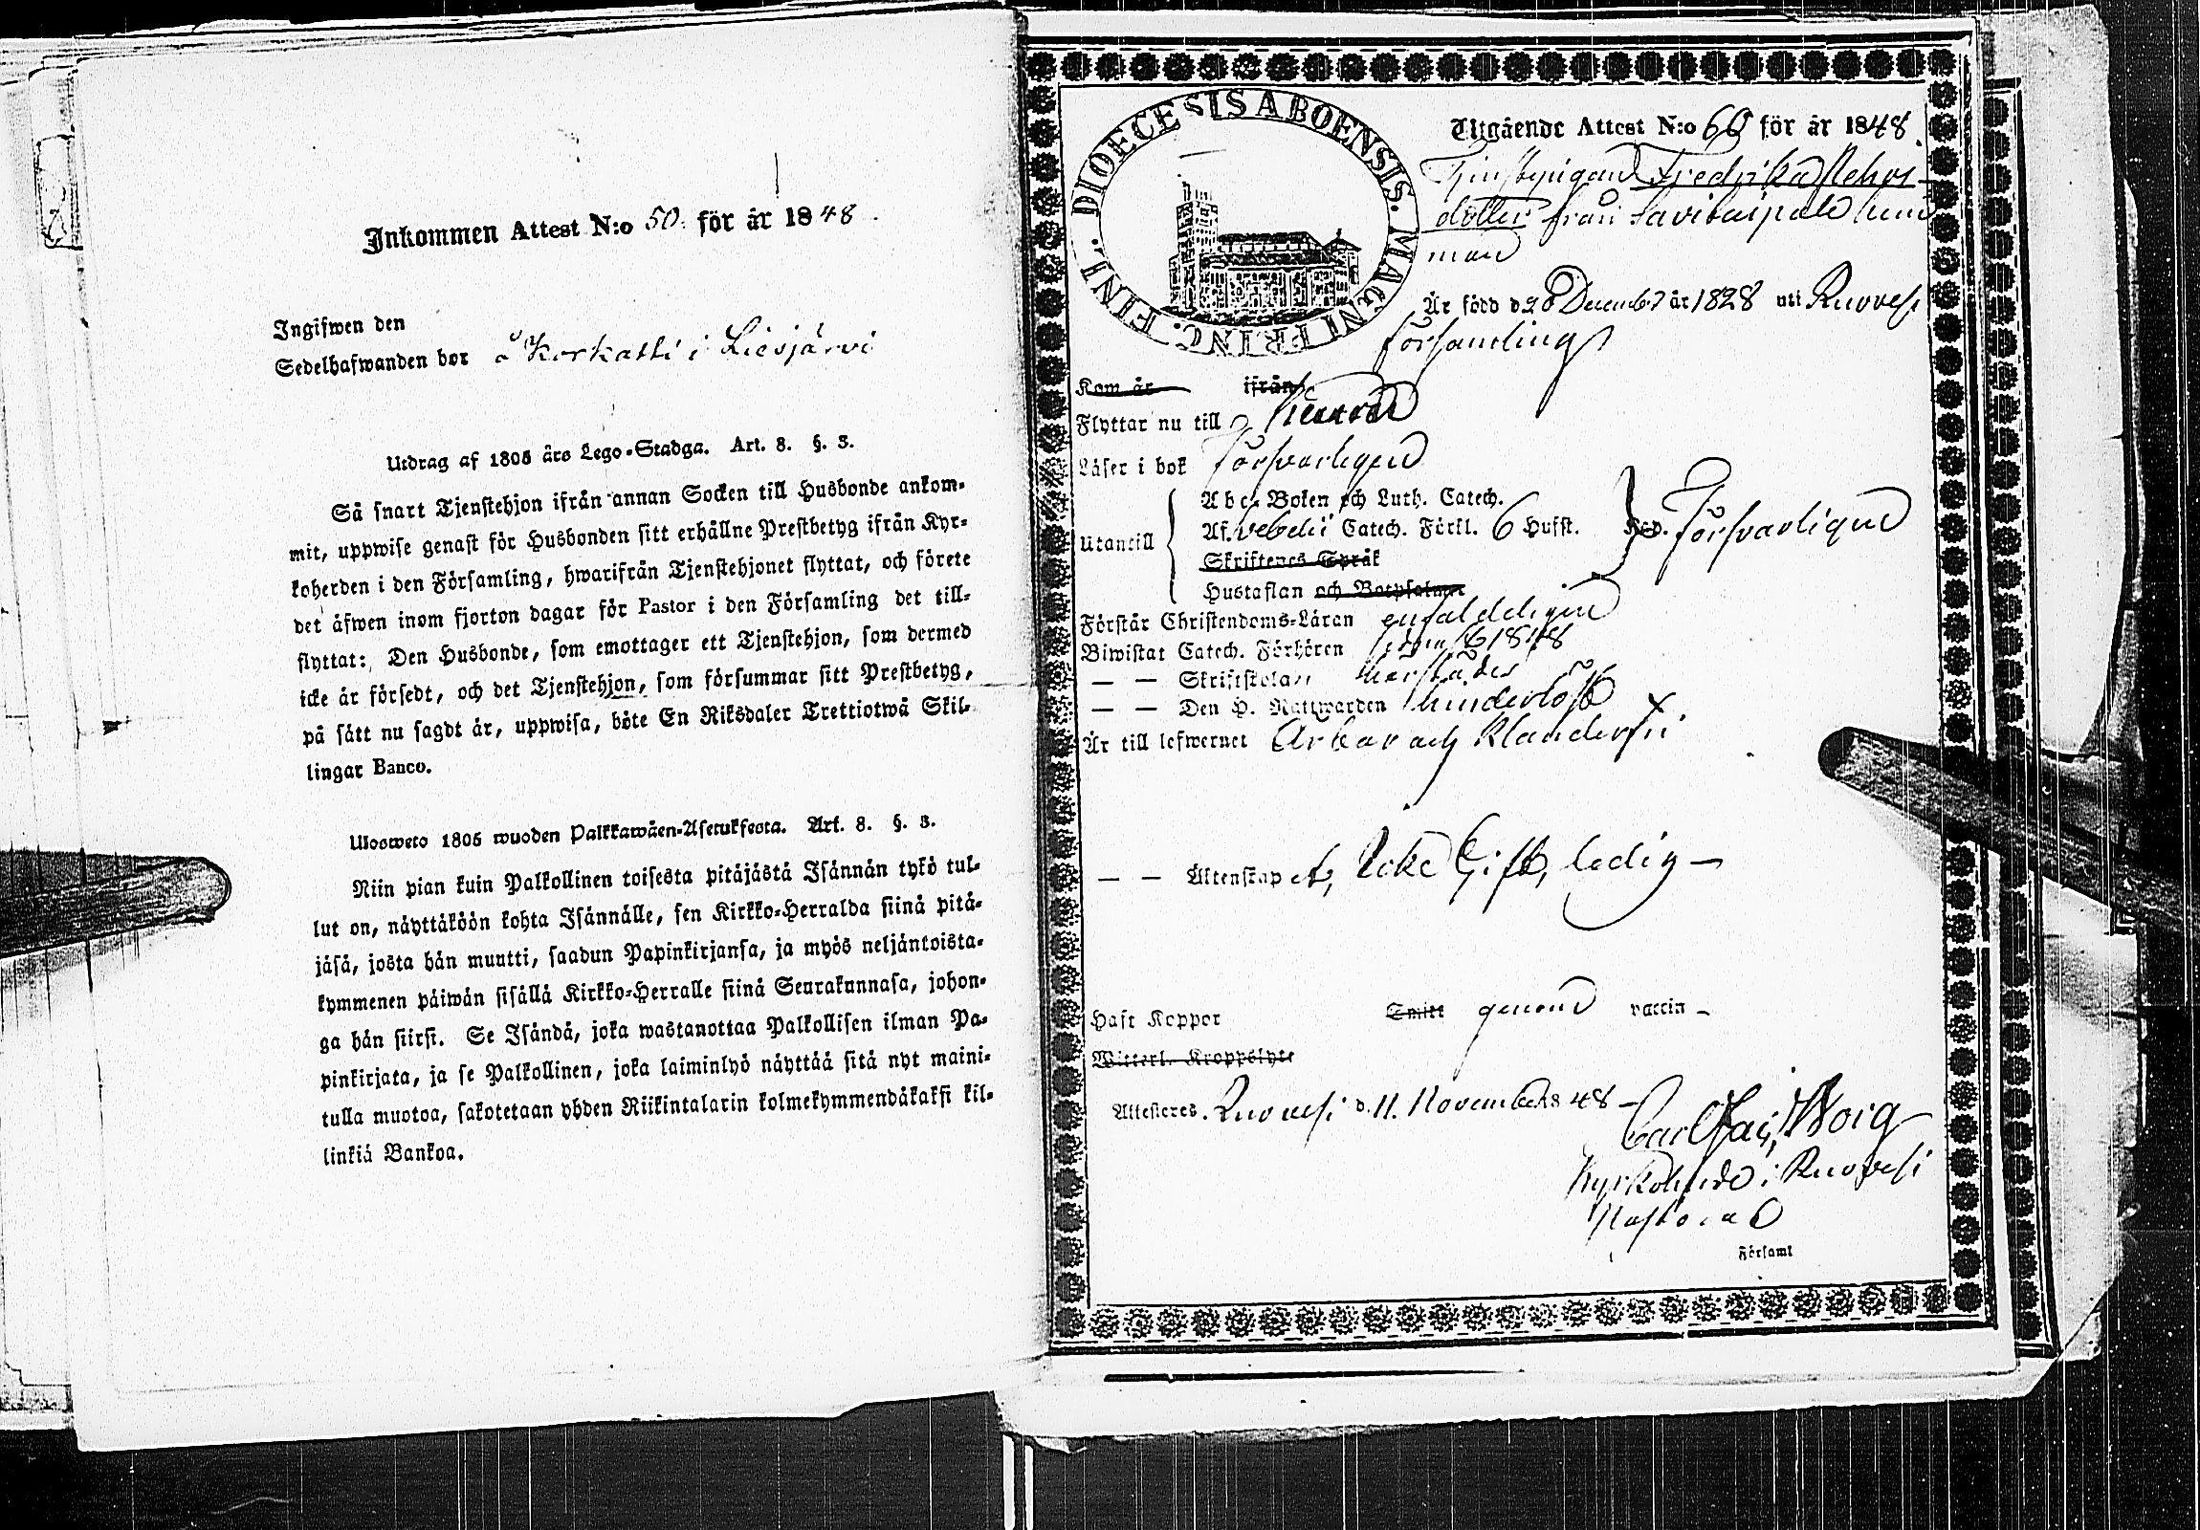 Inkommen Attest N:o 50. för år 1848.
Ingifwen den
Sedelhafwanden bor å Korkatti i Liesjärvi
Utdrag af 1805 års Lego-Stadga. Art. 8. §. 3.
Så snart Tjenstehjon ifrån annan Socken till Husbonde ankom-
mit, uppwise genast för Husbonden sitt erhållne Prestbetyg ifrån Kyr-
koherden i den Församling, hwarifrån Tjenstehjonet flyttat, och förete
det äfwen inom fjorton dagar för Pastor i den Församling det till-
flyttat: Den Husbonde, som emottager ett Tjenstehjon, som dermed
icke är försedt, och det Tjenstehjon, som försummar sitt Prestbetyg,
på sätt nu sagdt är, uppwisa, böte En Riksdaler Trettiotwå Skil-
lingar Banco.
Ulosweto 1805 wuoden Palkkawäen-Asetuksesta. Art. 8. §. 3.
Niin pian kuin Palkollinen toisesta pitäjästä Isännän tykö tul-
lut on, näyttäköön kohta Isännälle, sen Kirkko-Herralda siinä pitä-
jäsä, josta hän muutti, saadun Papinkirjansa, ja myös neljäntoista-
kymmenen päiwän sisällä Kirkko-Herralle siinä Seurakunnasa, johon-
ga hän siirsi. Se Isändä, joka wastanottaa Palkollisen ilman Pa-
pinkirjata, ja se Palkollinen, joka laiminlyö näyttää sitä nyt maini-
tulla muotoa, sakotetaan yhden Riikintalarin kolmekymmendäkaksi kil-
linkiä Bankoa.
DIOECESIS ABOENSIS. MAGNI PRINC. FINL.
Utgående Attest N:o 60 för år 1848.
Fredrika
dotter från
man
Är född d 20 December år 1828 uti Ruovesi
församling
Kom år ifrån
Flyttar nu till
Läser i bok försvarligen
Utantill
Abc-Boken och Luth. Catech.
Af Catech. Förkl. 6 Hufst. försvarligen
Skriftenes Språk
Hustaflan och Botpsalmer
Förstår Christendoms-Läran enfaldeligen
Biwistat Catech. Förhören 1848
— — Skriftskolan
— — Den H. Nattwarden hinderlös
Är till lefwernet ärbar och klanderfri
— — Äktenskapet, Icke Gift, ledig —
Haft Koppor Smitt genom vaccin —
Witterl. Kroppslyte
Attesteres. Ruovesi d. 11. November 1848 —
Carl Woig
Kyrkoherde i Ruovesi
Pastorat
Församl